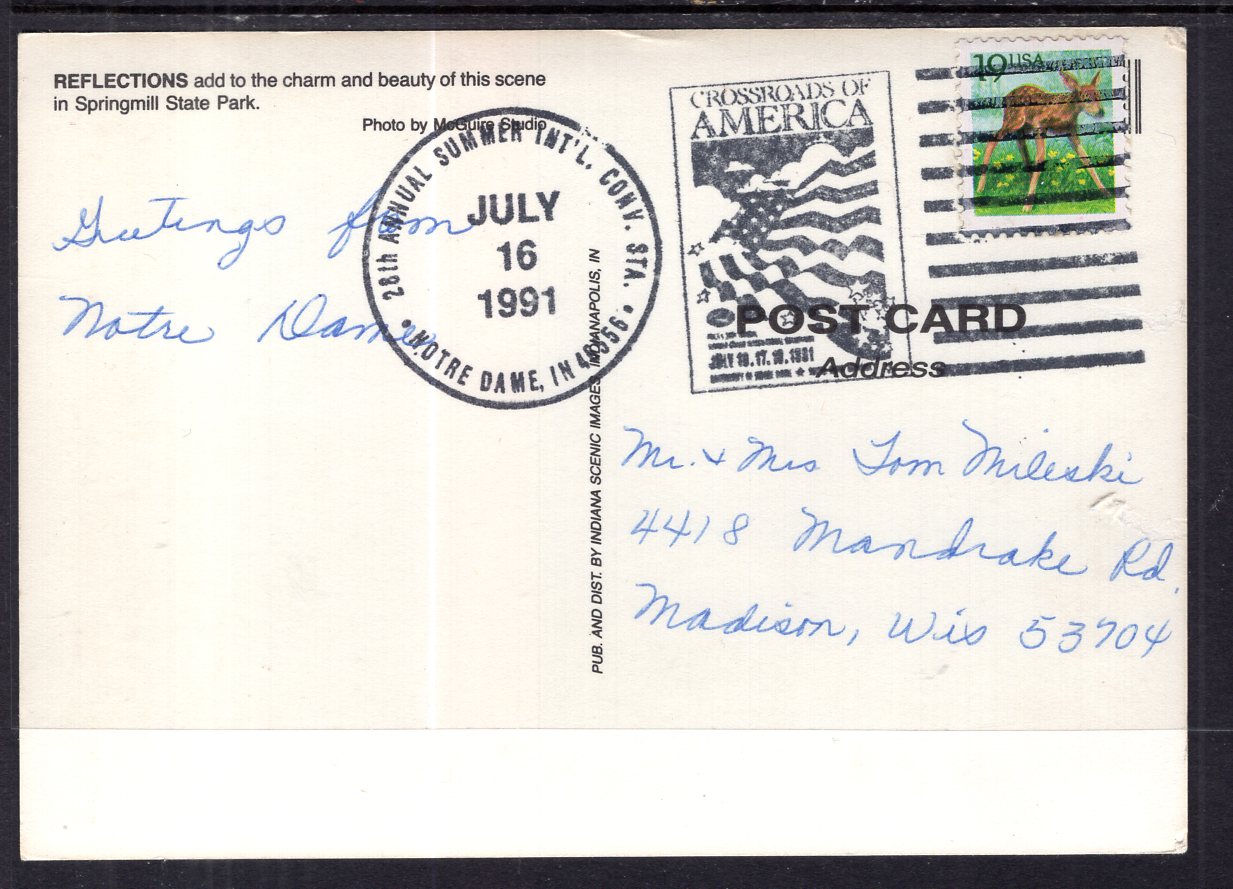 REFLECTIONS add to the charm and beauty of this scene
in Springmill State Park.
Photo by McGuire Studio
Greetings from
Notre Dame
28th ANNUAL SUMMER INT'L. CONV. STA.
JULY
16
1991
NOTRE DAME, IN 46556
CROSSROADS OF
AMERICA
JULY 16.17.18.1991
19 USA
POST CARD
Address
PUB. AND DIST. BY INDIANA SCENIC IMAGES, INDIANAPOLIS, IN
Mr. + Mrs Tom Mileski
4418 Mandrake Rd.
Madison, Wis 53704